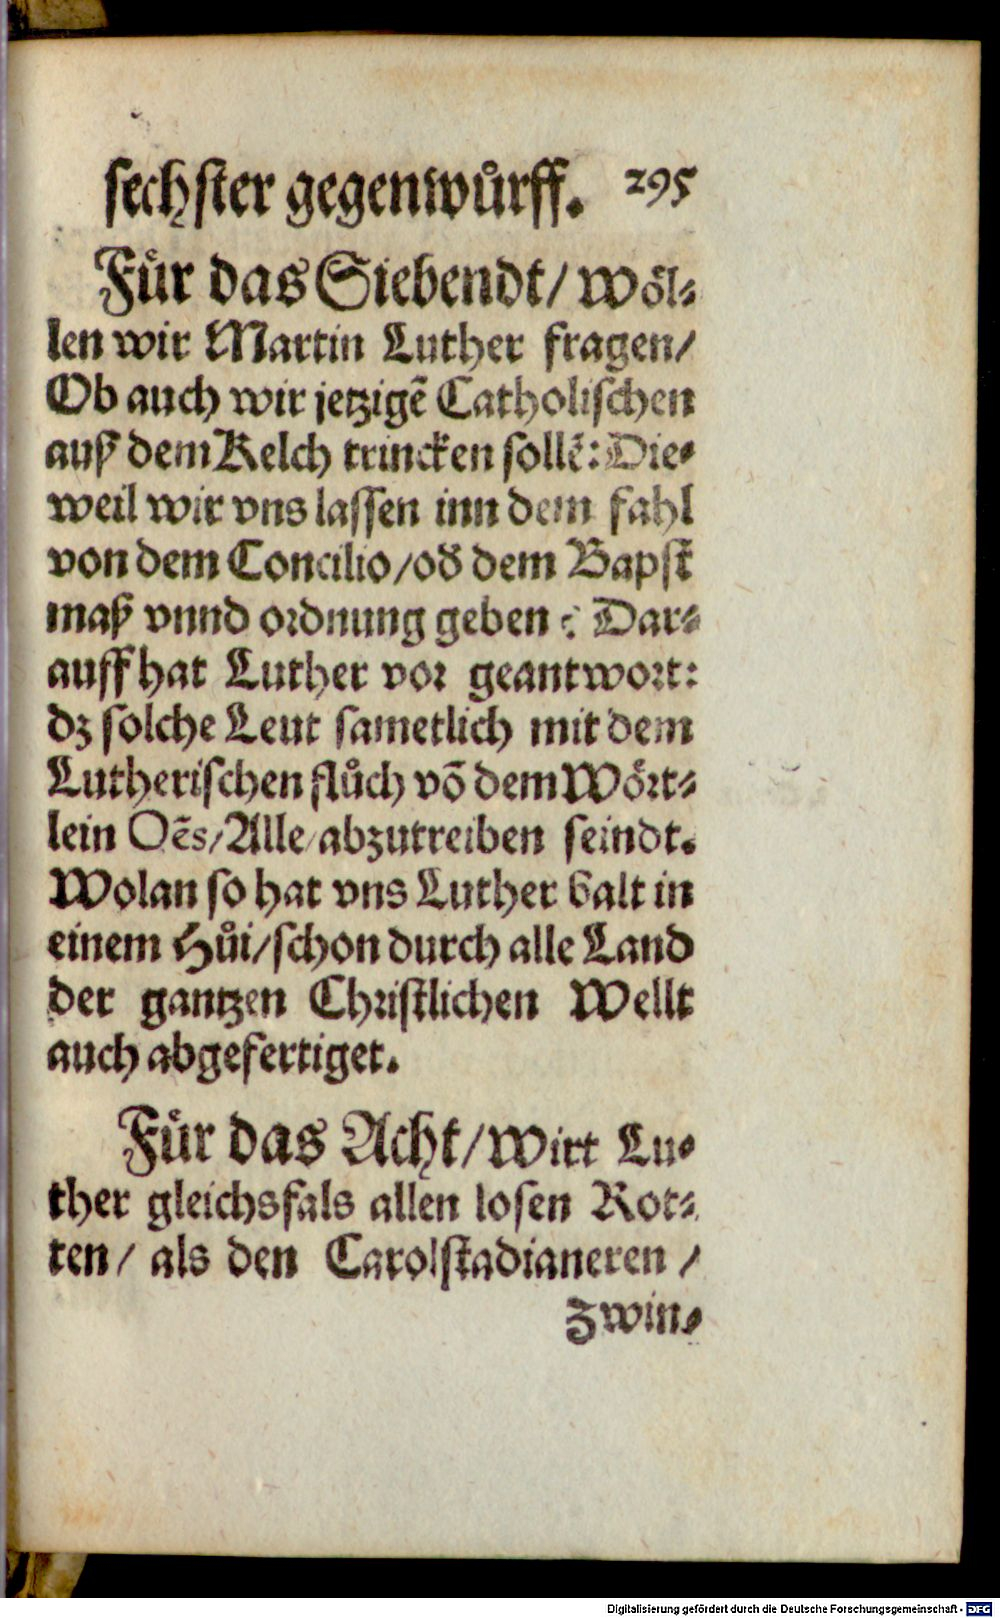 sechster gegenwuͤrff. 295
Fuͤr das Siebendt/ woͤl⸗
len wir Martin Luther fragen/
Ob auch wir jetzigẽ Catholischen
auß dem Kelch trincken sollẽ: Die⸗
weil wir vns lassen inn dem fahl
von dem Concilio/od̕ dem Bapst
maß vnnd ordnung geben: Dar⸗
auff hat Luther vor geantwort:
dz solche Leut sametlich mit dem
Lutherischen fluͤch võ dem Woͤrt⸗
lein Oẽs/Alle/abzutreiben seindt.
Wolan so hat vns Luther balt in
einem Huͤi/schon durch alle Land
der gantzen Christlichen Wellt
auch abgefertiget.
Fuͤr das Acht/wirt Lu⸗
ther gleichsfals allen losen Rot⸗
ten/ als den Carolstadianeren /
Zwin⸗
Digitalisierung gefördert durch die Deutsche Forschungsgemeinschaft - DFG